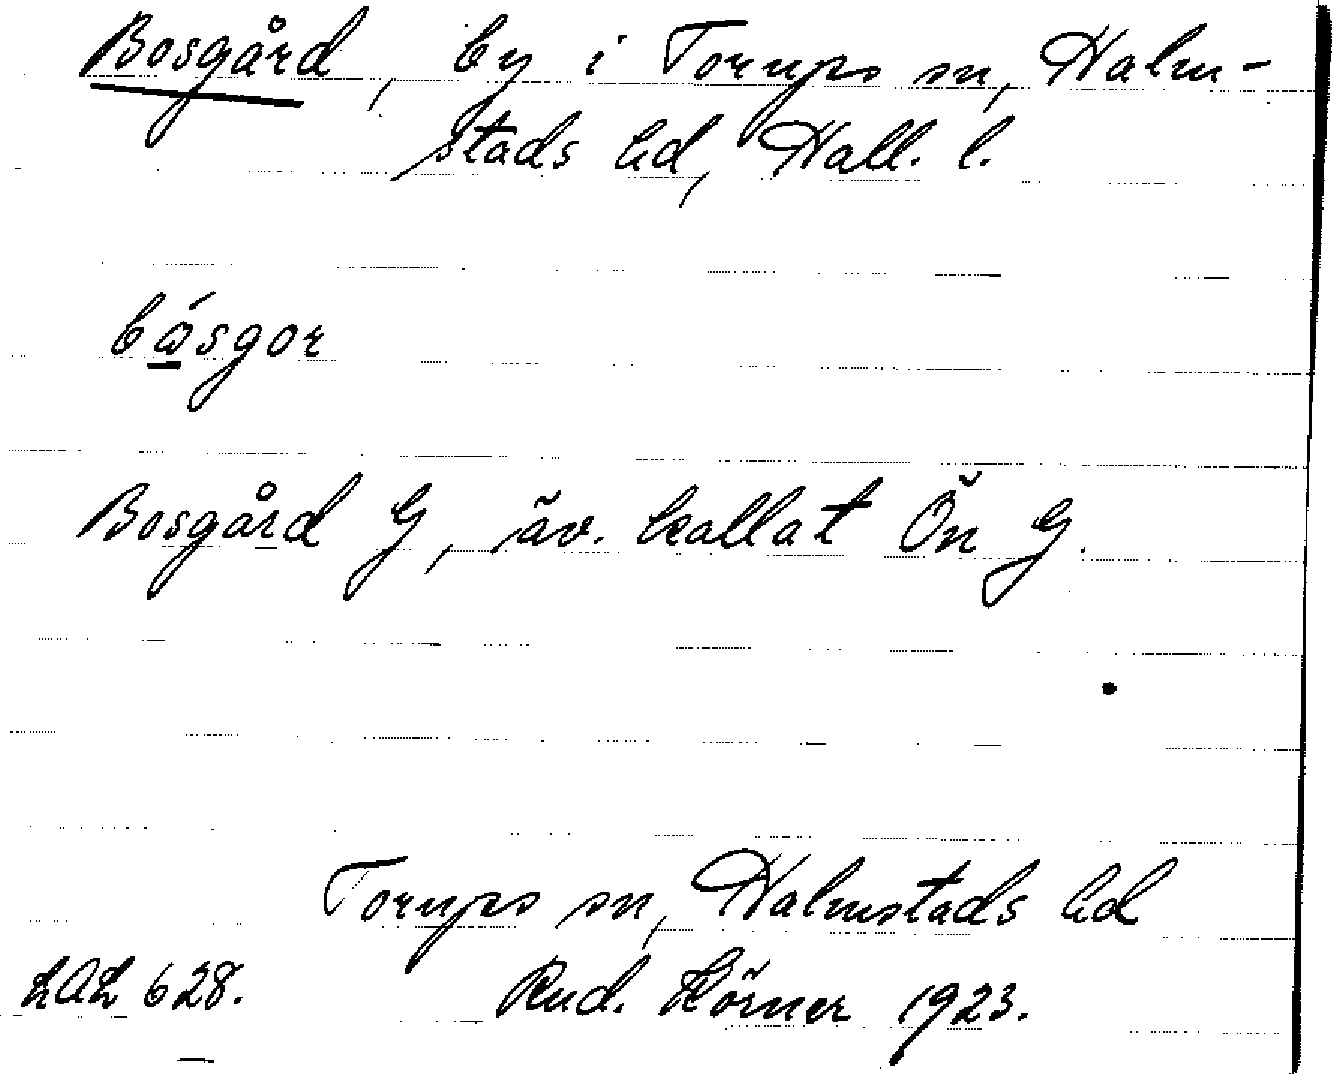 Bosgård, by i Torups sn, Halm-
stads hd, Hall. l.
bó̲sgor
Bosgård G, äv. kallat Ön G.
Torups sn, Halmstads hd
LAL 628. Rud. Hörner 1923.